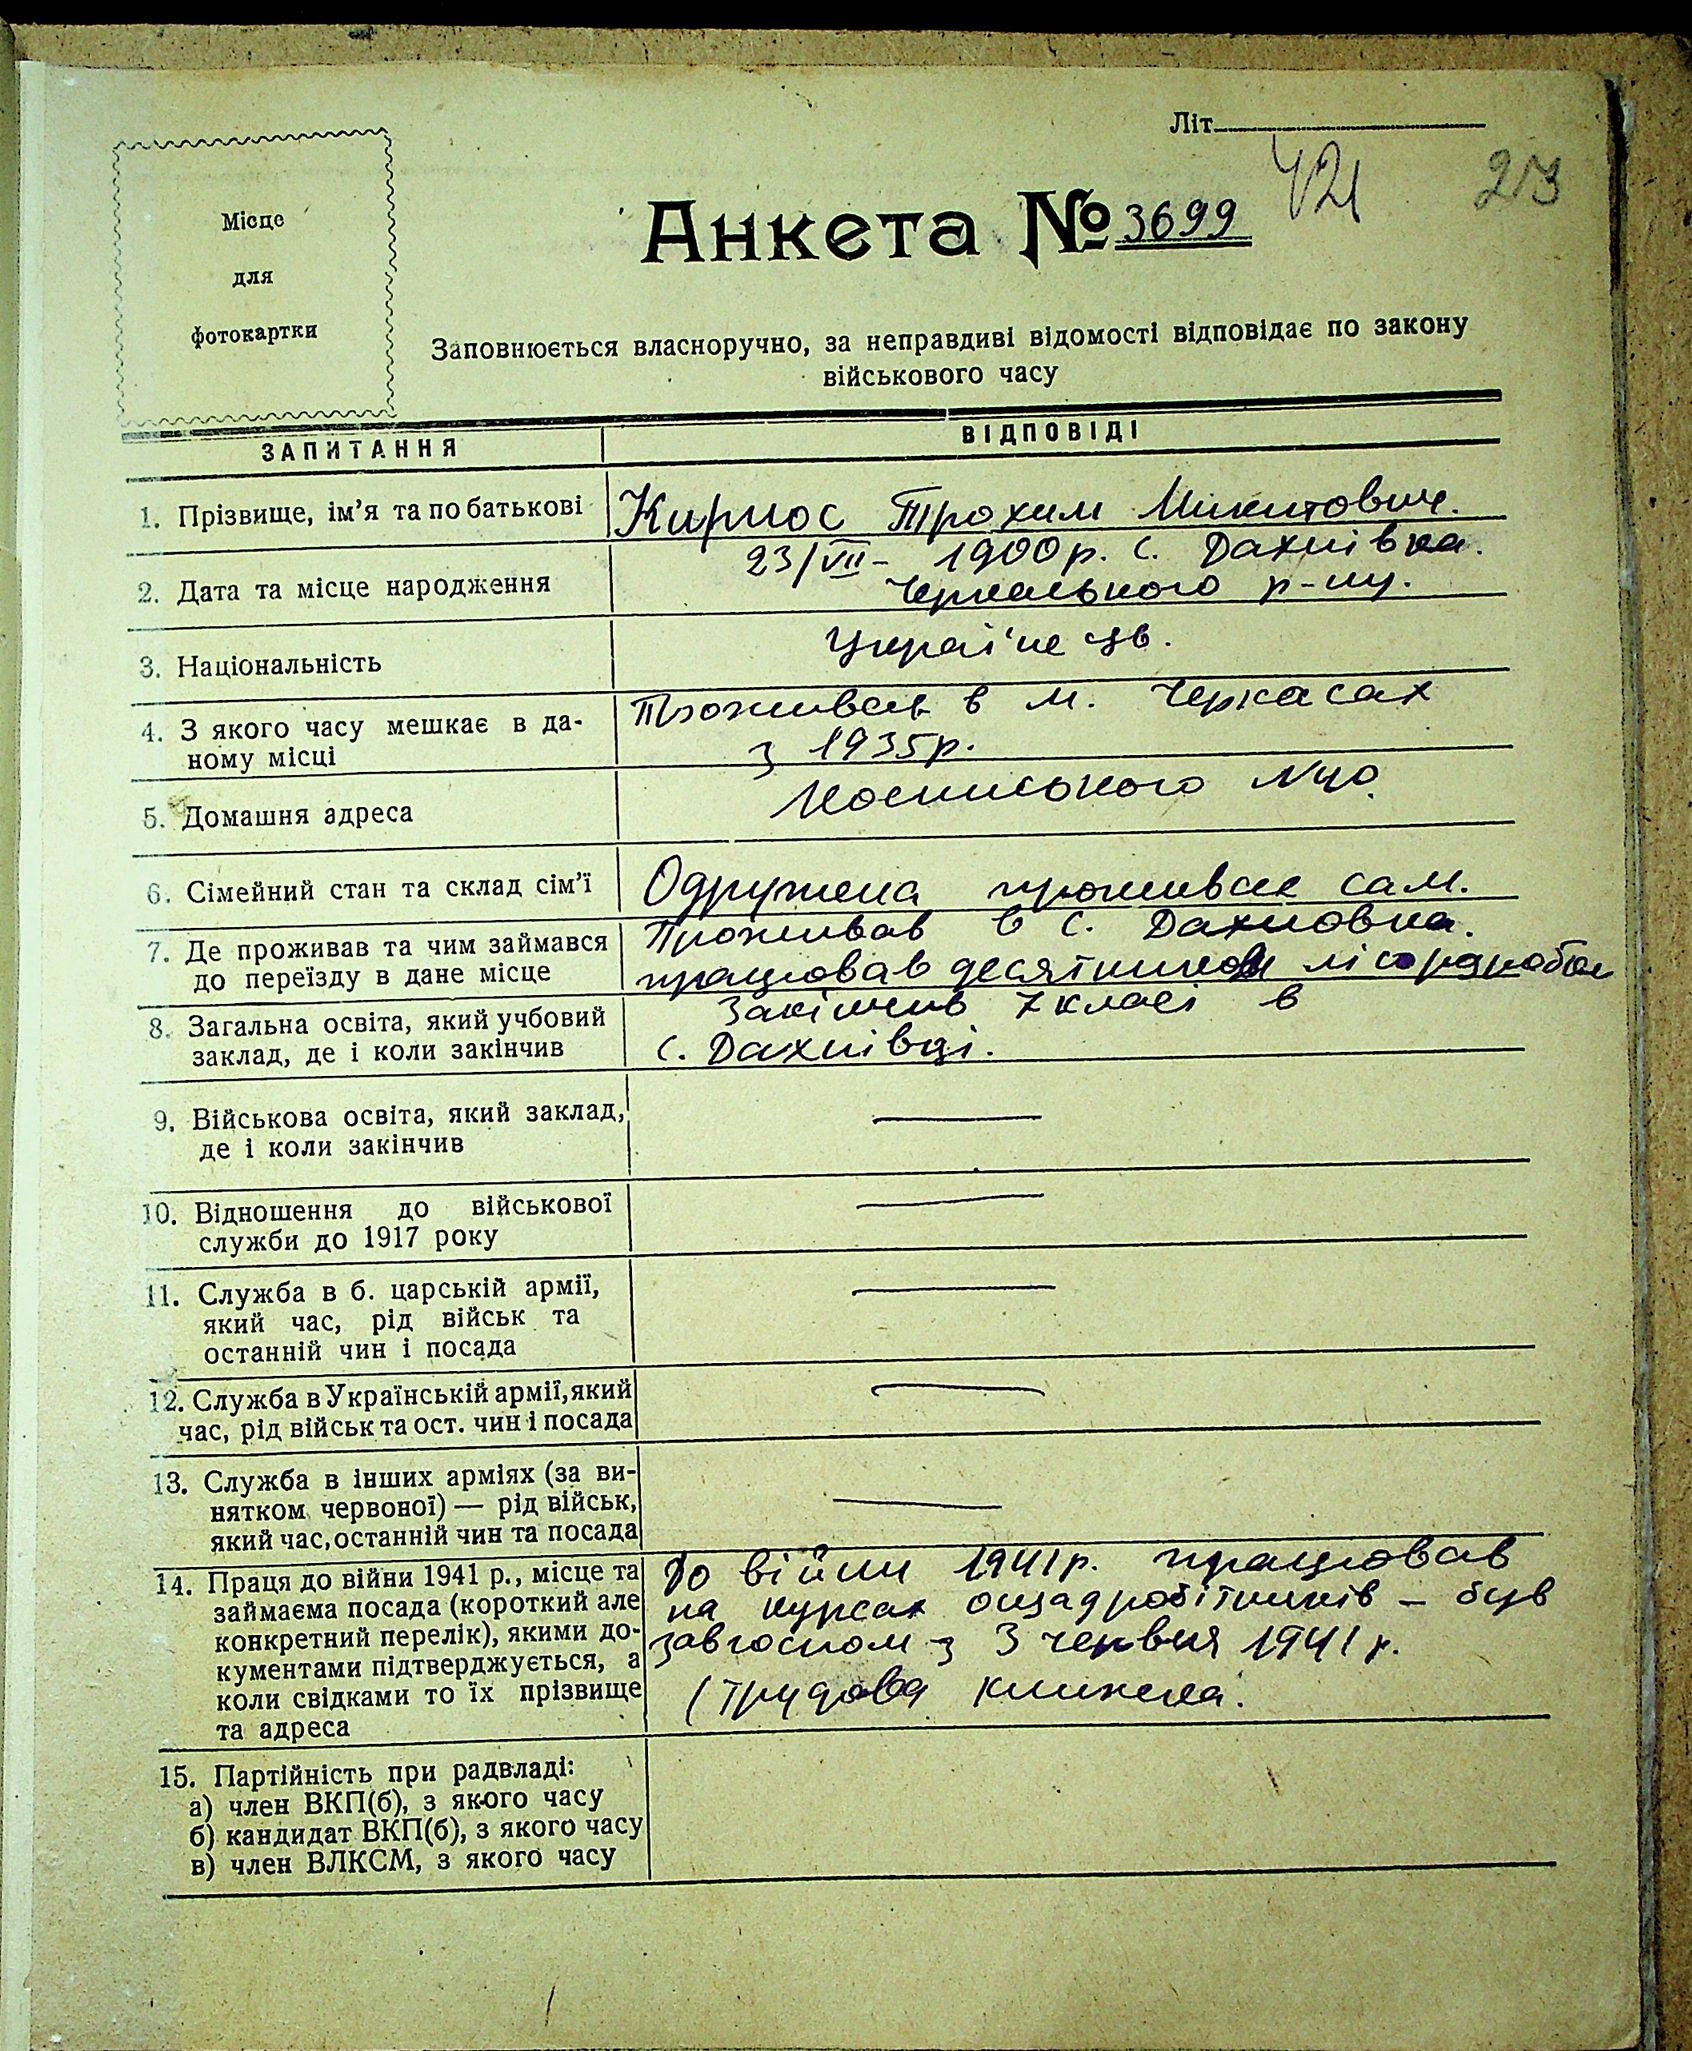 Літ
421
273
Місце
для
фотокартки
Анкета № 3699
Заповнюється власноручно, за неправдиві відомості відповідає по закону
військового часу
ЗАПИТАННЯ
ВІДПОВІДІ
1. Прізвище, ім'я та по батькові
Кирпос Трохим Микитович.
2. Дата та місце народження
23/VII - 1900 р. с. Дахнівка.
Черкаського р-ну.
3. Національність
Україне ць.
4. З якого часу мешкає в да-
ному місці
Проживав в м. Черкасах
з 1935 р.
5. Домашня адреса
№ 40
6. Сімейний стан та склад сім'ї
Одружена проживає сам.
7. Де проживав та чим займався
до переїзду в дане місце
Проживав в с. Дахновка.
працював десятником
8. Загальна освіта, який учбовий
заклад, де і коли закінчив
Закінчив 7 класі в
с. Дахнівці.
9. Військова освіта, який заклад,
де і коли закінчив
10. Відношення до військової
служби до 1917 року
11. Служба в б. царській армії,
який час, рід військ та
останній чин і посада
12. Служба в Українській армії, який
час, рід військ та ост. чин і посада
13. Служба в інших арміях (за ви-
нятком червоної) — рід військ,
який час, останній чин та посада
14. Праця до війни 1941 р., місце та
займаєма посада (короткий але
конкретний перелік), якими до-
кументами підтверджується, а
коли свідками то їх прізвище
та адреса
До війни 1941 р. працював
на курсах ощадробітників - був
завгоспом з 3 червня 1941 р.
(трудова книжка.
15. Партійність при радвладі:
а) член ВКП(б), з якого часу
б) кандидат ВКП(б), з якого часу
в) член ВЛКСМ, з якого часу